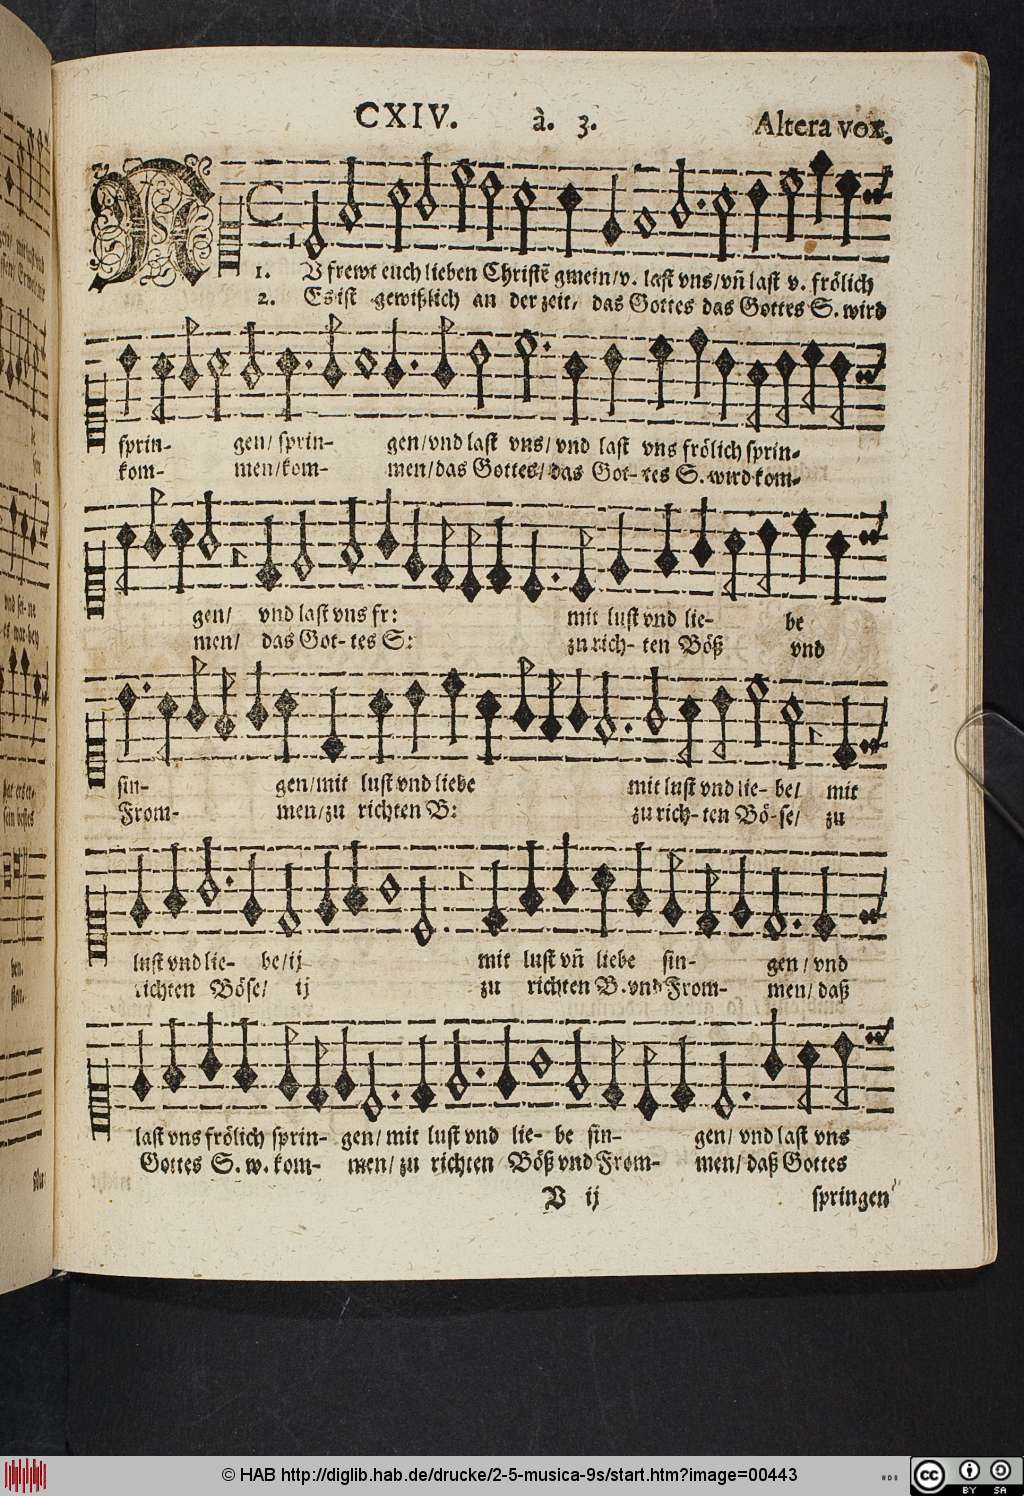 CXIV. à. 3. Altera vox.
1. NU frewt euch lieben Christē gmein/v. last vns/vñ last v. frölich
2. Es ist gewißlich an der zeit/ das Gottes das Gottes S. wird
sprin- gen/ sprin- gen/vnd last vns/vnd last vns frölich sprin-
kom- men/kom- men/das Gottes/das Got- tes S. wird kom-
gen/ vnd last vns fr: mit lust vnd lie- be
men/ das Got- tes S: zu rich- ten Böß vnd
sin- gen/mit lust vnd liebe mit lust vnd lie- be/ mit
From- men/zu richten B: zu rich- ten Bö-se/ zu
lust vnd lie- be/ij mit lust vñ liebe sin- gen/ vnd
richten Böse/ ij zu richten B. vnd From- men/ daß
last vns frölich sprin- gen/ mit lust vnd lie- be sin- gen/ vnd last vns
Gottes S. w. kom- men/ zu richten Böß vnd From- men/ daß Gottes
V ij springen
© HAB http://diglib.hab.de/drucke/2-5-musica-9s/start.htm?image=00443
cc BY SA